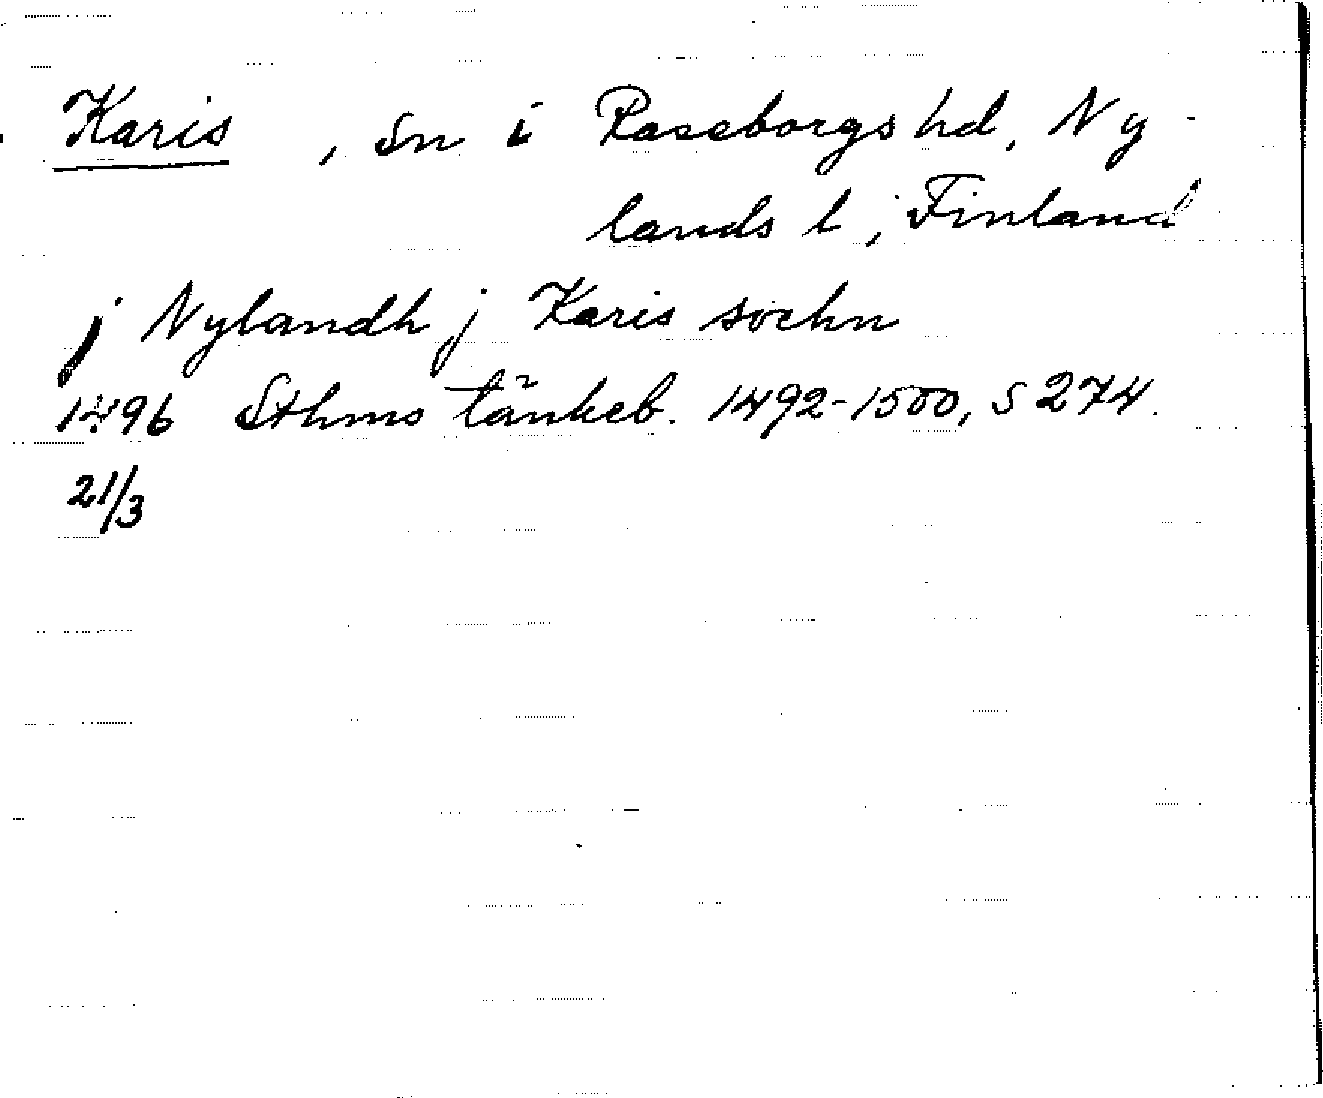 Karis, Sn i Raseborgs hd, Ny-
lands l, Finland
j Nylandh j Karis sochn
1496 Sthms tänkeb. 1492-1500, S 274.
21/3